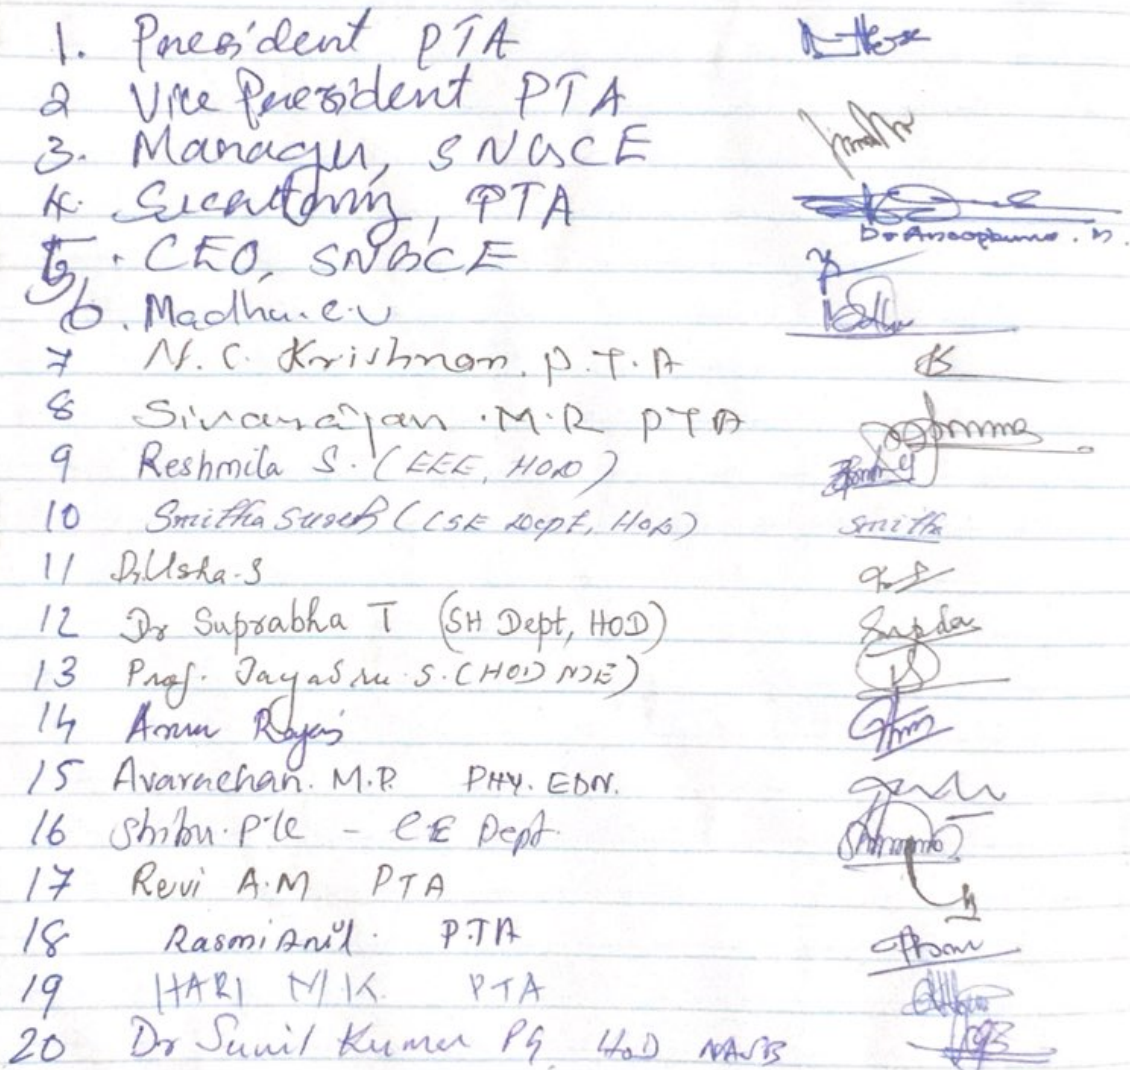 1. President PTA
2 Vice President PTA
3. Manager, SNGCE
4. Secretary, PTA
Dr Anoopkumar. M.
5. CEO, SNGCE
6. Madhu. C.V
7 N. C. Krishnan. P.T.A
8 Sivarajan. M.R PTA
9 Reshmila S. (EEE, HOD)
10 Smitha Suresh (CSE Dept, HOD) Smitha
11 Dr Usha. S
12 Dr Suprabha T (SH Dept, HOD)
13 Prof. Jayasree. S. (HOD
14 Anu
15 Avarachan. M.P. PHY. EDN.
16 Shibu. P.K - CE Dept.
17 Revi A.M PTA
18 Rasmi Anil. PTA
19 HARI N K. PTA
20 Dr Sunil Kumar PG HOD